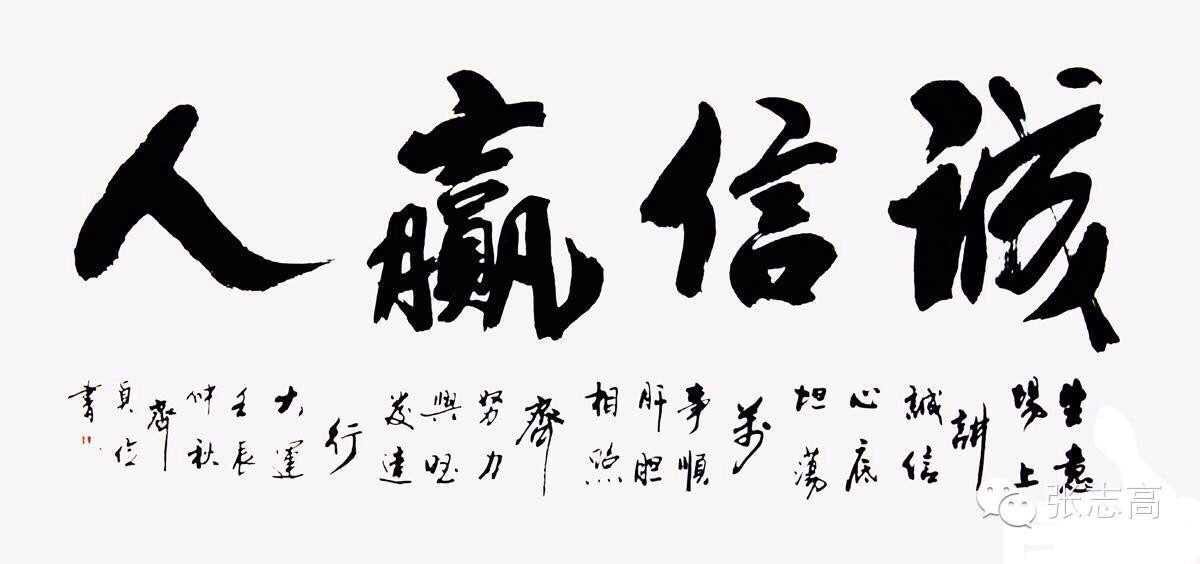 誠信贏人
生意
場上
講
誠信
心底
坦蕩
萬
事順
肝胆
相照
齊
努力
興旺
發達
行
大運
壬辰
仲秋
齊
貞
書
张志高